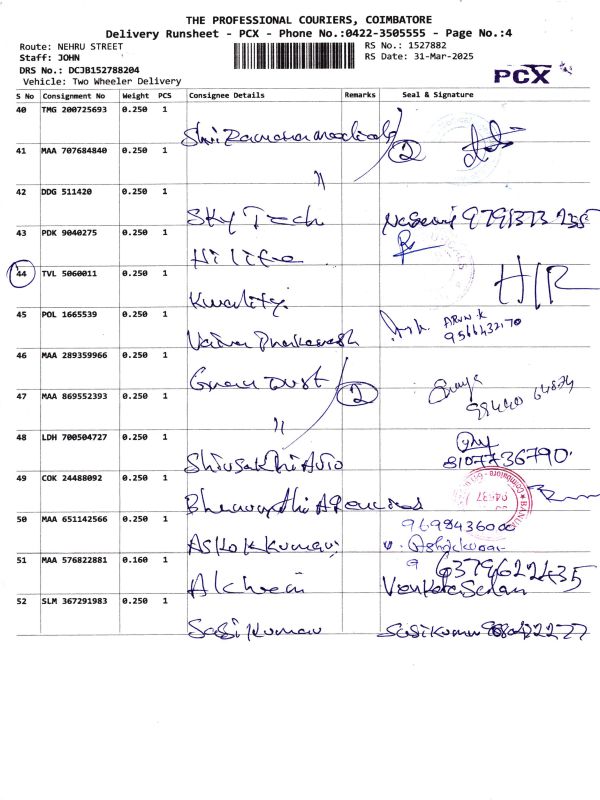 THE PROFESSIONAL COURIERS, COIMBATORE
Delivery Runsheet - PCX - Phone No.:0422-3505555 - Page No.:4
Route: NEHRU STREET
RS No.: 1527882
Staff: JOHN
RS Date: 31-Mar-2025
DRS No.: DCJB152788204
PCX
Vehicle: Two Wheeler Delivery
S No Consignment No Weight PCS Consignee Details Remarks Seal & Signature
40 TMG 200725693 0.250 1
2
41 MAA 707684840 0.250 1 "
42 DDG 511420 0.250 1 Sky Tech
43 PDK 9040275 0.250 1 Hi life
44 TVL 5060011 0.250 1 Kwality H/R
45 POL 1665539 0.250 1 ARUN.K
46 MAA 289359966 0.250 1 Dust 2
47 MAA 869552393 0.250 1 "
48 LDH 700504727 0.250 1 8107736790
49 COK 24488092 0.250 1
50 MAA 651142566 0.250 1 Ashok Kumar 9698436000
51 MAA 576822881 0.160 1 6379622435
52 SLM 367291983 0.250 1 Sasikumar Sasikumar